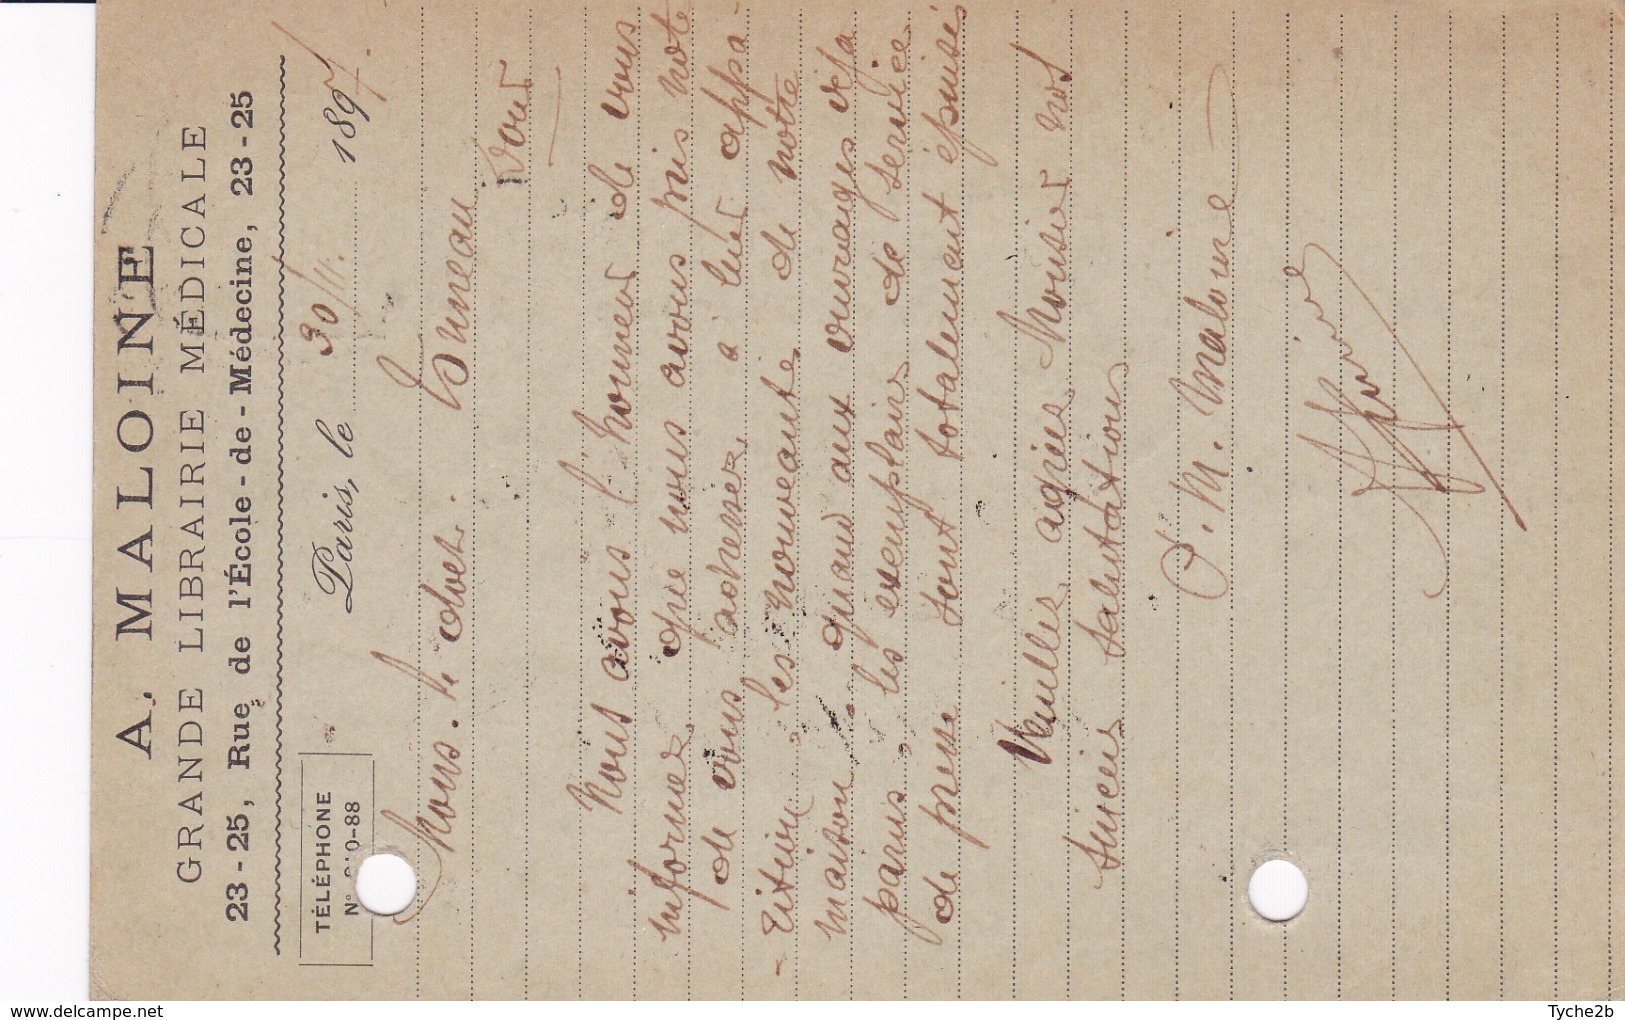 A. MALOINE
GRANDE LIBRAIRIE MÉDICALE
23-25, Rue de l'École-de-Médecine, 23-25
TÉLÉPHONE
N° 0-88
Paris, le 30/11. 1897.
Mons. le doct. Bruneau
Nous avons l'honneur de vous
informer que nous avons pris note
de vous adresser à leur appa-
- rition les nouveautés de notre
maison quand aux ouvrages deja
parus, les exemplaires de service
de presse sont totalement épuisés
Veuillez agréer Monsieur nos
sincers salutations
P. M. Maloine
delcampe.net
Tyche2b